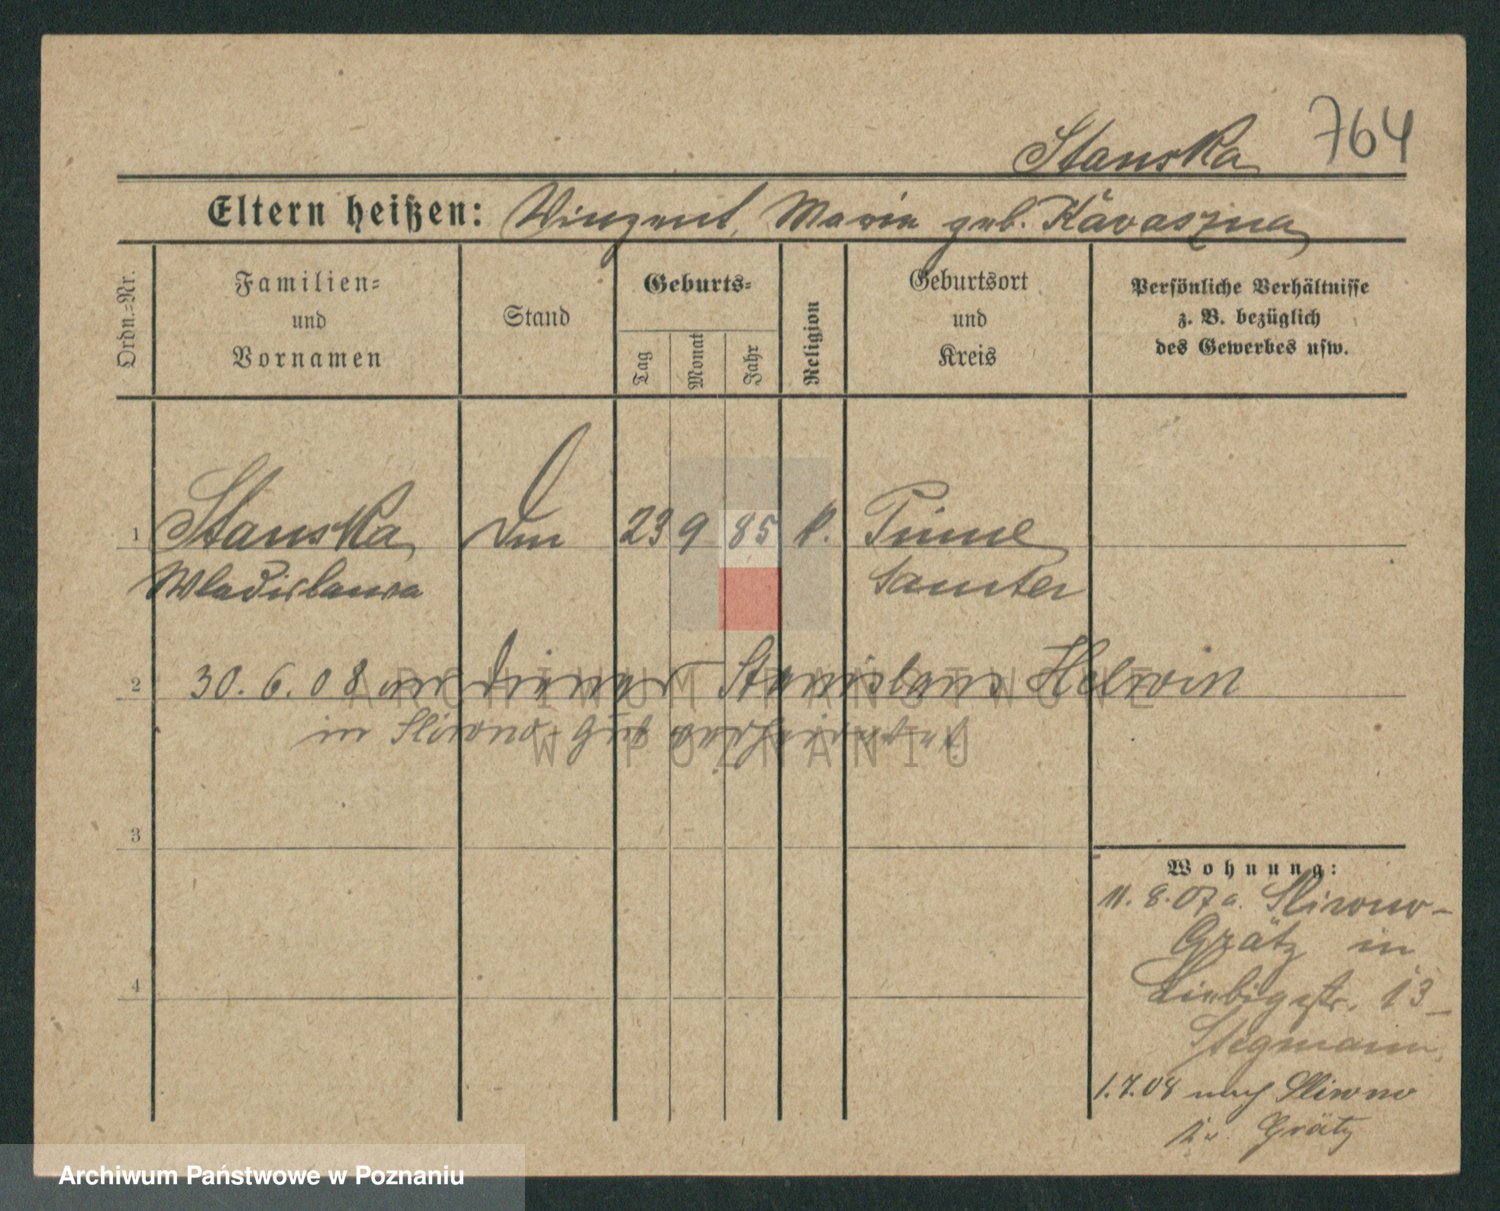 764
Stanska
Eltern heißen: Vinzent, Maria geb. Kávaszna
Ordn.-Nr.
Familien- und Vornamen
Stand
Geburts-
Tag Monat Jahr
Religion
Geburtsort und Kreis
Persönliche Verhältnisse
z. B. bezüglich
des Gewerbes usw.
1 Stanska 23 9 85 k. Pinne
Wladislawa Samter
2 30.6.08 Diener Stanislaus Helwin
in Sliwno-Gut verheiratet
3
4
Wohnung:
11.8.07 a. Sliwno-
Grätz in
Liebigstr. 13
Stegmann
1.7.08 nach Sliwno
Kr. Grätz
ARCHIWUM PAŃSTWOWE
W POZNANIU
Archiwum Państwowe w Poznaniu